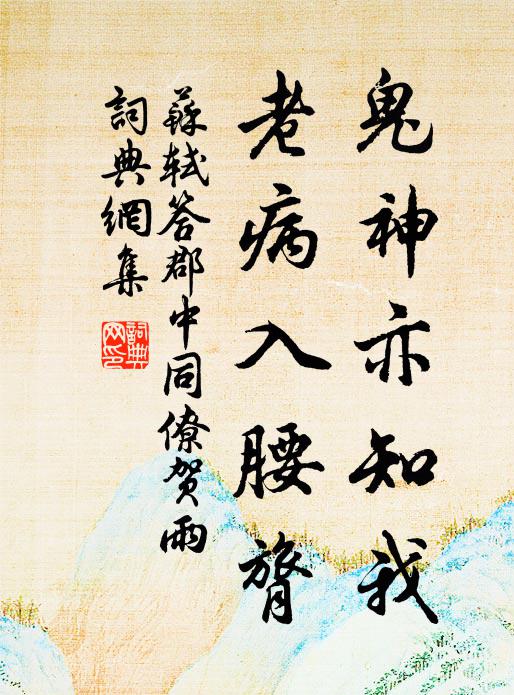 鬼神亦知我
老病入腰膂
蘇軾答郡中同僚賀雨
詞典網集
詞典網印